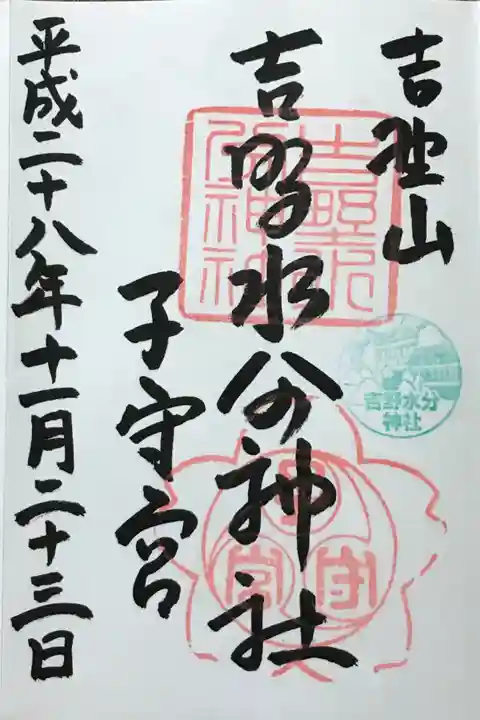 吉野山
吉野水分神社
子守宮
平成二十八年十一月二十三日
吉野水分
神社